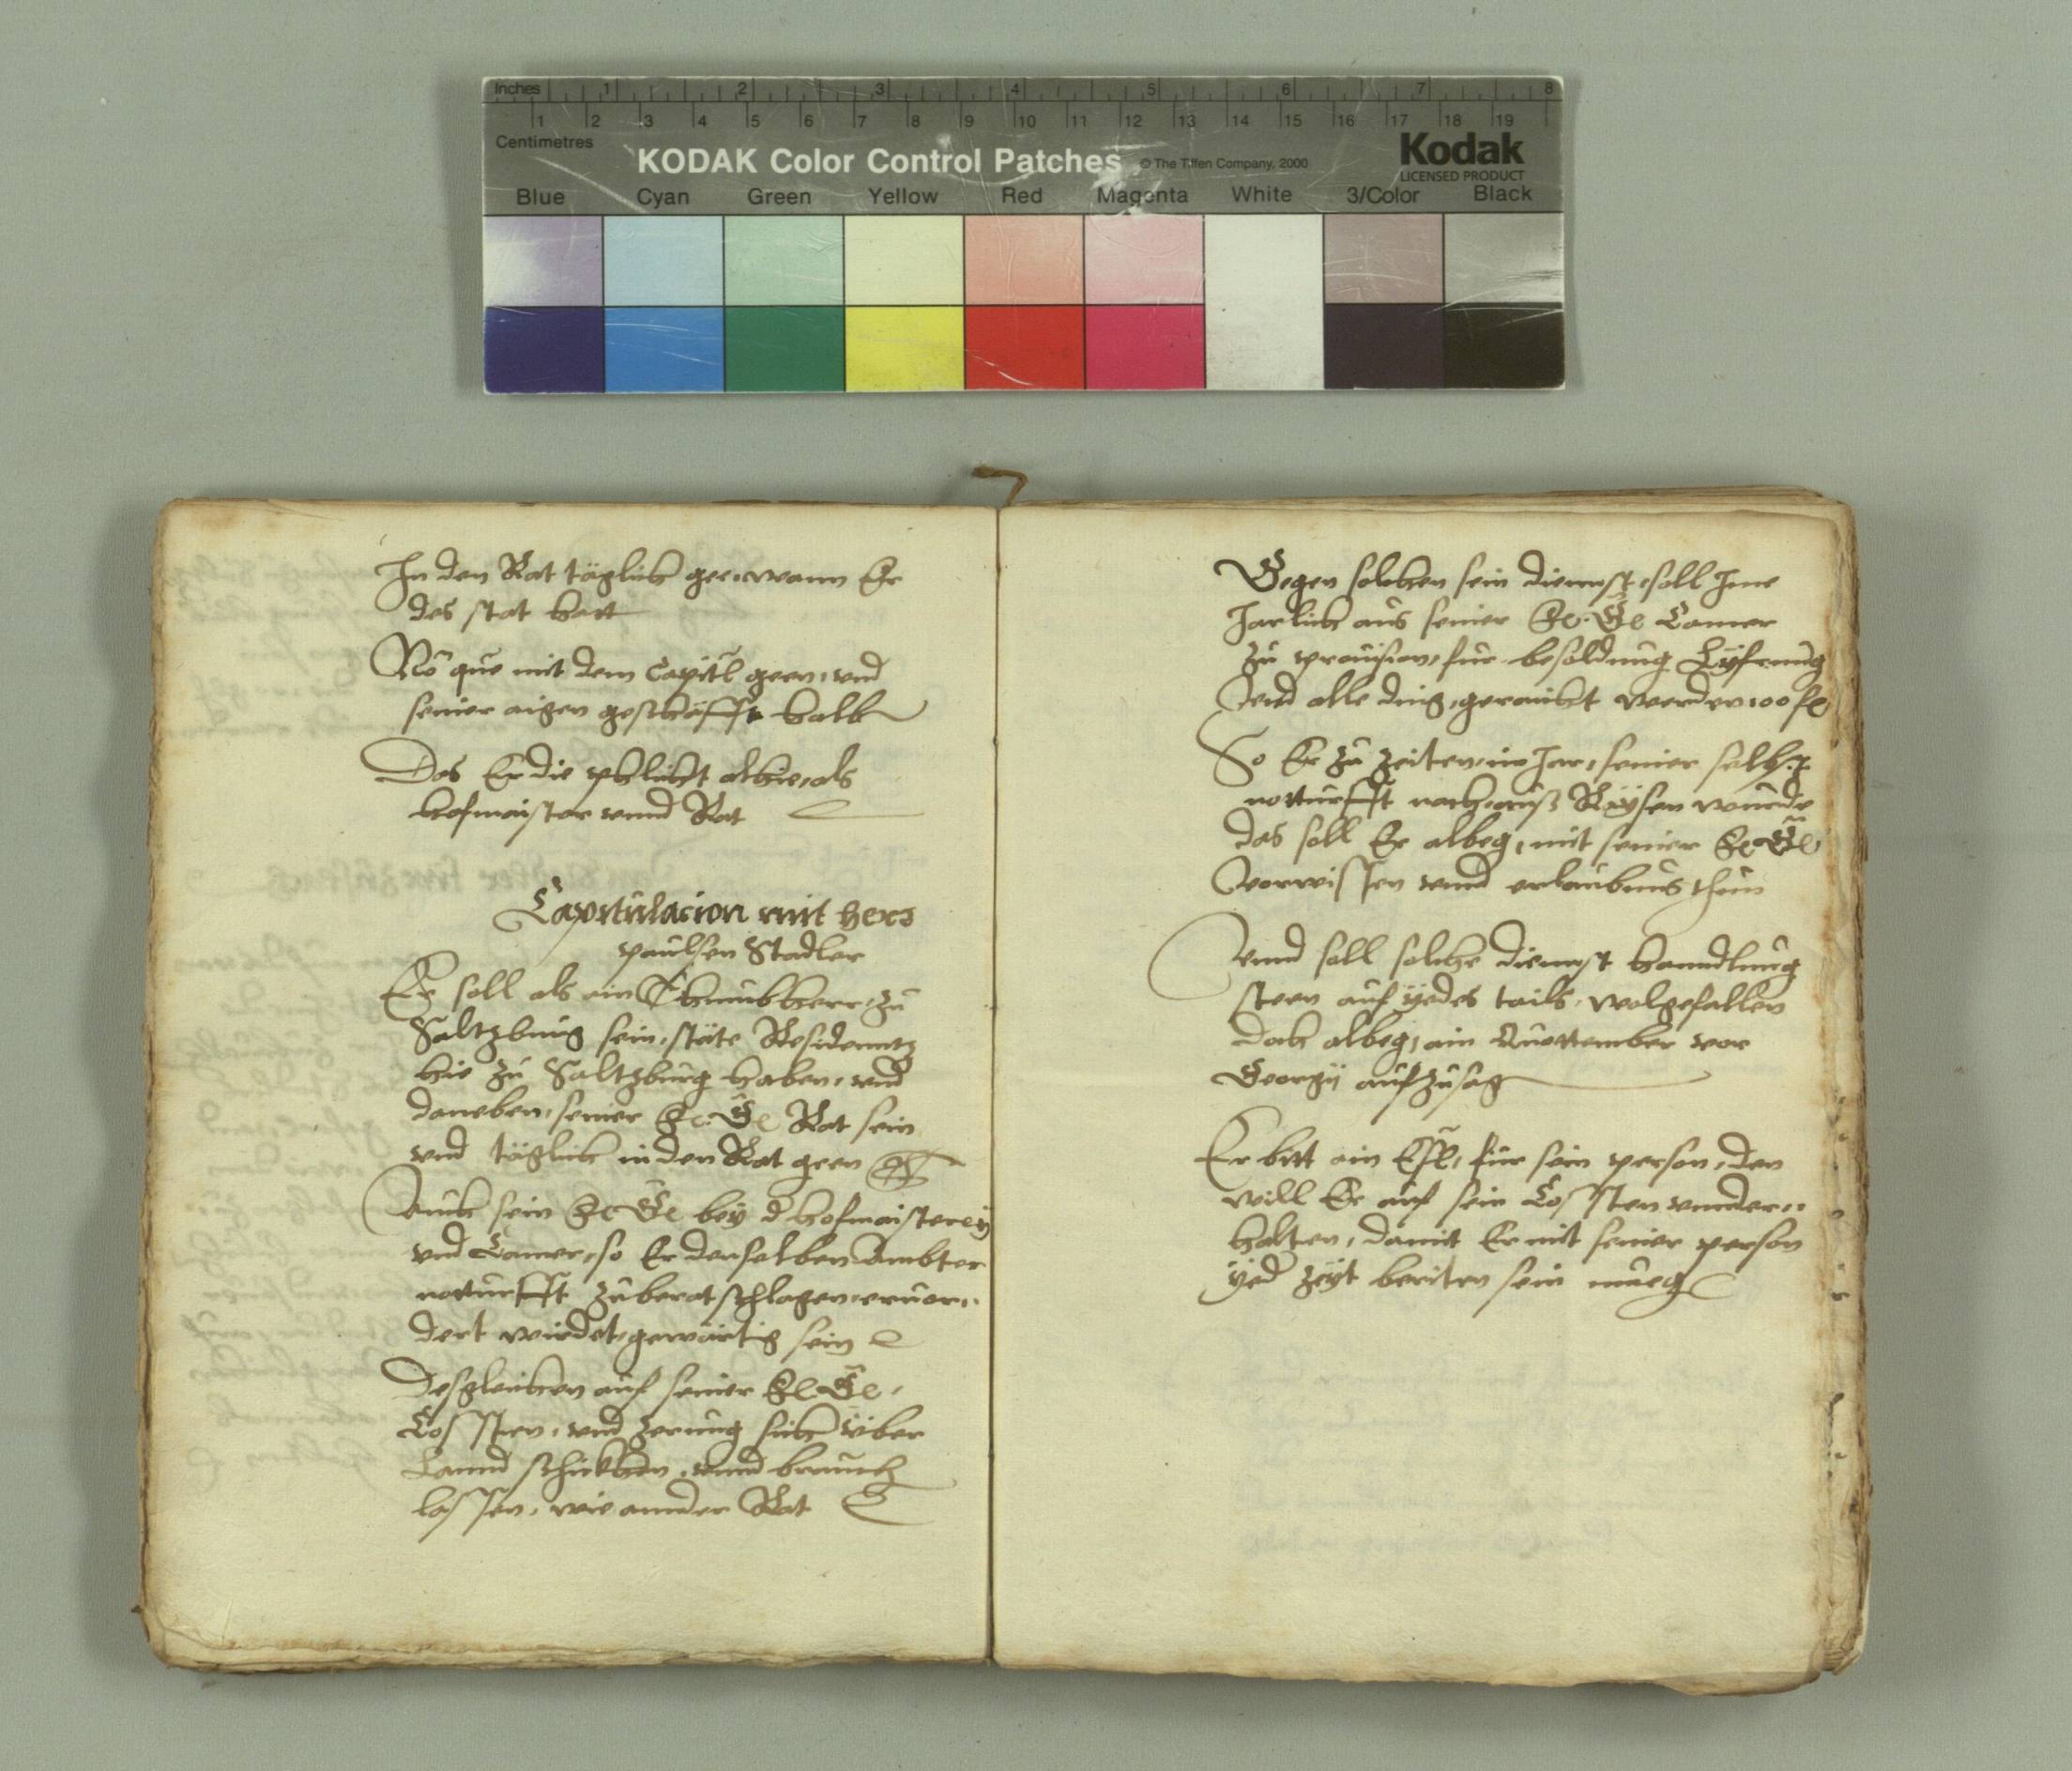 Inches 1 2 3 4 5 6 7 8
1 2 3 4 5 6 7 8 9 10 11 12 13 14 15 16 17 18 19
Centimetres
KODAK Color Control Patches © The Tiffen Company, 2000 Kodak
LICENSED PRODUCT
Blue Cyan Green Yellow Red Magenta White 3/Color Black
In den Rat täglich gee, wann Er
des stat hatt
mit dem Capitl geen, vnd
seiner aigen geschäfft halb
Das Er die phlicht alhie, als
hofmaister vnnd Rat
Capitulacion mit herr
paulsen Stadler
Er soll als ein Thumbherr, zu
Saltzburg sein, stäte Residenntz
hie zu Saltzburg haben, vnd
daneben, seiner F. G. Rat sein
vnd täglich in den Rat geen
Auch sein F. G. bey d hofmaisterey
vnd Camer, so Er derselben Ambter
notturfft zuberatschlagen, eruor,,
dert wirdet, gewärtig sein
Desgleichen auf seiner F. G.
Cossten, vnd zerung sich über
Lannd schickhen, vnnd brauch
lassen, wie annder Rat
Gegen solchen sein diennst, soll Ime
Jarlich aus seiner F. G. Camer
zu prouision, fur besoldung Lyfrung
vnd alle ding, geraicht werden 100 fl
So Er zu zeiten, im Jar, seiner selbst
notturfft nach, auß Raysen wurde
das soll Er albeg, mit seiner F. G.
vorwissen vnnd erlaubnus thun
Vnnd soll solche diennst hanndlung
steen auf yedes tails, wolgefallen
Doch albeg, ain Quottember vor
Georgy aufzusag
Er bitt ain Esl, fur sein person, den
will Er auf sein Cossten vnnder,,
halten, damit Er mit seiner person
yed zeyt beriten sein mueg